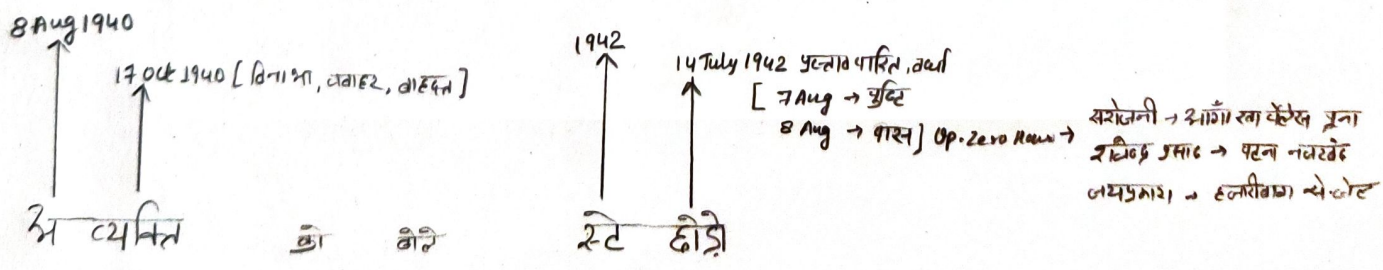 8 Aug 1940
17 Oct 1940 [ विनोभा, जवाहर, ब्रह्मदत्त ]
1942
14 July 1942 प्रस्ताव पारित, वर्धा
[ 7 Aug → पुष्टि
8 Aug → पास ] Op. Zero Hour →
सरोजनी → आगाँ खा पैलेस पूना
राजेन्द्र प्रसाद → पटना नजरबंद
जयप्रकाश → हजारीबाग सेन्ट्रल
अ व्यक्ति को बोले स्टे छोड़ो